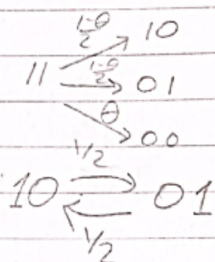 1-θ/2 10
11 1-θ/2 01
θ 00
1/2
10 01
1/2